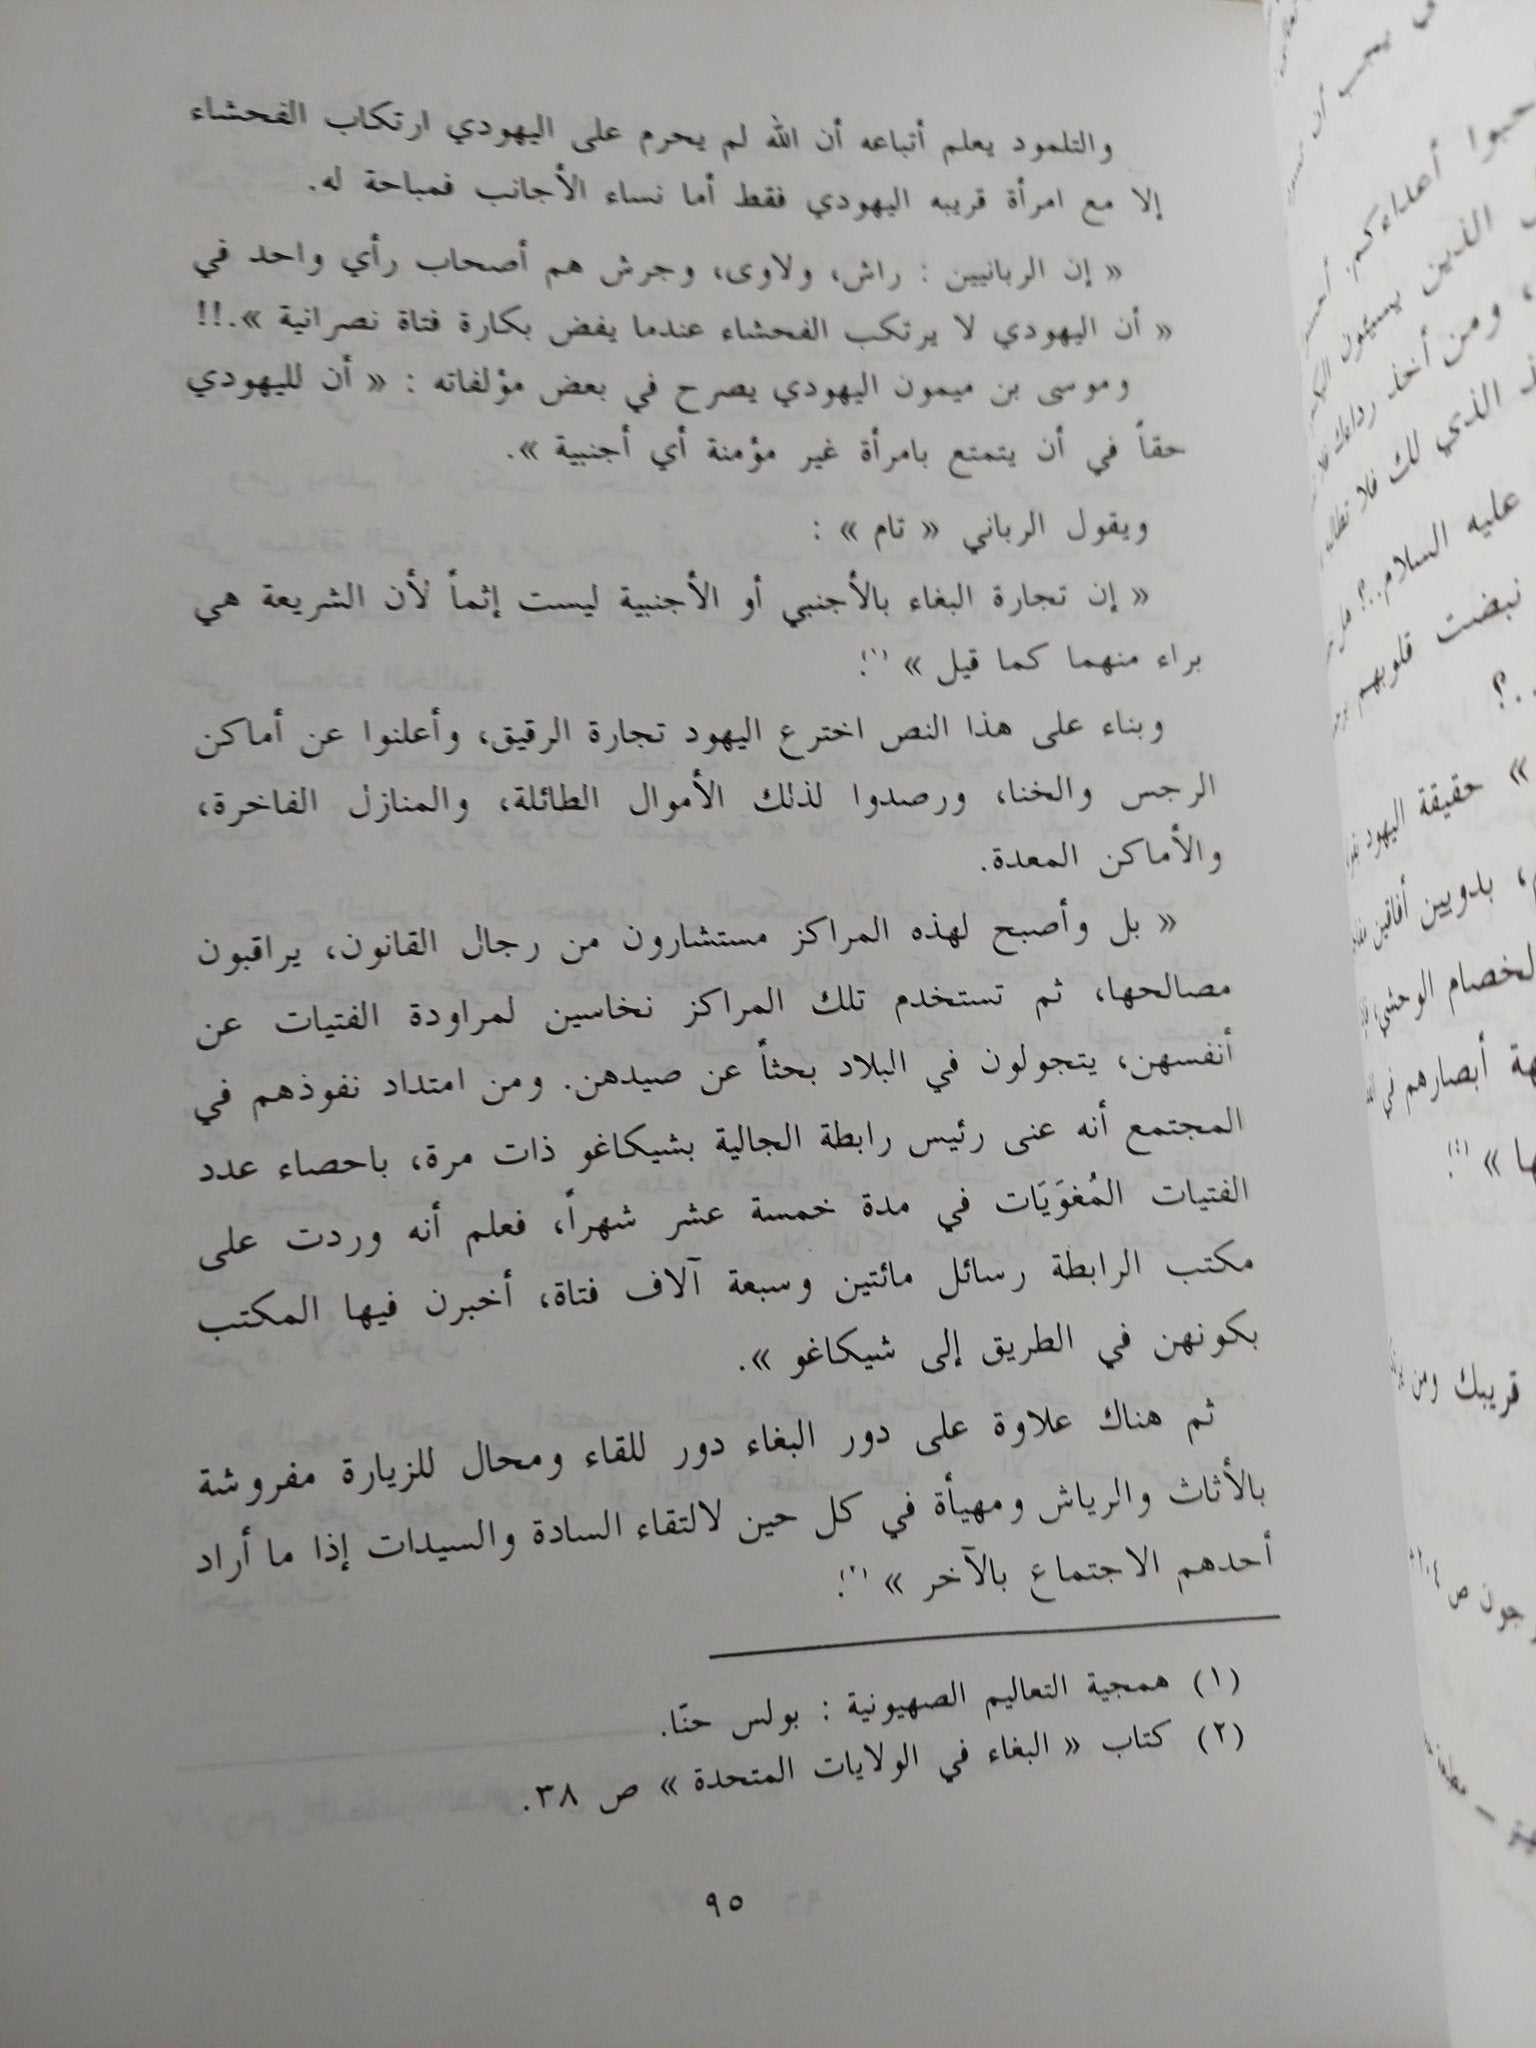 والتلمود يعلم أتباعه أن الله لم يحرم على اليهودي ارتكاب الفحشاء
إلا مع امرأة قريبه اليهودي فقط أما نساء الأجانب فمباحة له.
« إن الربانيين : راش، ولاوى، وجرش هم أصحاب رأي واحد في
« أن اليهودي لا يرتكب الفحشاء عندما يفض بكارة فتاة نصرانية ».!!
وموسى بن ميمون اليهودي يصرح في بعض مؤلفاته : « أن لليهودي
حقاً في أن يتمتع بامرأة غير مؤمنة أي أجنبية ».
ويقول الرباني « تام » :
« إن تجارة البغاء بالأجنبي أو الأجنبية ليست إثماً لأن الشريعة هي
براء منهما كما قيل » (١).
وبناء على هذا النص اخترع اليهود تجارة الرقيق، وأعلنوا عن أماكن
الرجس والخنا، ورصدوا لذلك الأموال الطائلة، والمنازل الفاخرة،
والأماكن المعدة.
« بل وأصبح لهذه المراكز مستشارون من رجال القانون، يراقبون
مصالحها، ثم تستخدم تلك المراكز نخاسين لمراودة الفتيات عن
أنفسهن، يتجولون في البلاد بحثاً عن صيدهن. ومن امتداد نفوذهم في
المجتمع أنه عنى رئيس رابطة الجالية بشيكاغو ذات مرة، باحصاء عدد
الفتيات المُغوَيَات في مدة خمسة عشر شهراً، فعلم أنه وردت على
مكتب الرابطة رسائل مائتين وسبعة آلاف فتاة، أخبرن فيها المكتب
بكونهن في الطريق إلى شيكاغو ».
ثم هناك علاوة على دور البغاء دور للقاء ومحال للزيارة مفروشة
بالأثاث والرياش ومهيأة في كل حين لالتقاء السادة والسيدات إذا ما أراد
أحدهم الاجتماع بالآخر » (٢).
(١) همجية التعاليم الصهيونية : بولس حنّا.
(٢) كتاب « البغاء في الولايات المتحدة » ص ٣٨.
٩٥
يجب أن
أعداءكم.
الذين يسيئون
ومن أخذ رداءك
الذي لك فلا
عليه السلام..؟
نبضت قلوبهم
..؟
» حقيقة اليهود
بدويين أفاقين
الخصام الوحشي
أبصارهم في
قريبك ومن
جون ص ٢٠٤